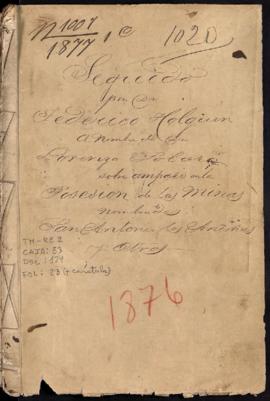 N 1007 1020
1877 1 C
Seguido
por Don
Federico Holguin
a nombre de Don
Lorenzo
sobre amparo en la
Posesion de las Minas
nombradas
San Antonio, los Andes
y Otros
TH-RE 2
CAJA: 53
DOC: 174
FOL: 23 (+ carátula)
1876